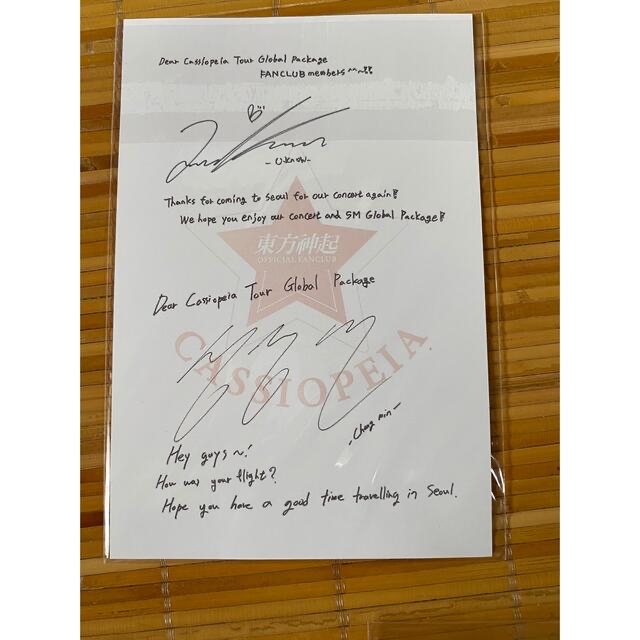 Dear Cassiopeia Tour Global Package
FANCLUB members ^^~!!
-U-KNOW-
Thanks for coming to Seoul for our concert again!
We hope you enjoy our concert and SM Global Package!
東方神起
OFFICIAL FANCLUB
Dear Cassiopeia Tour Global Package
CASSIOPEIA
-Chang min-
Hey guys ~!
How was your flight?
Hope you have a good time travelling in Seoul.